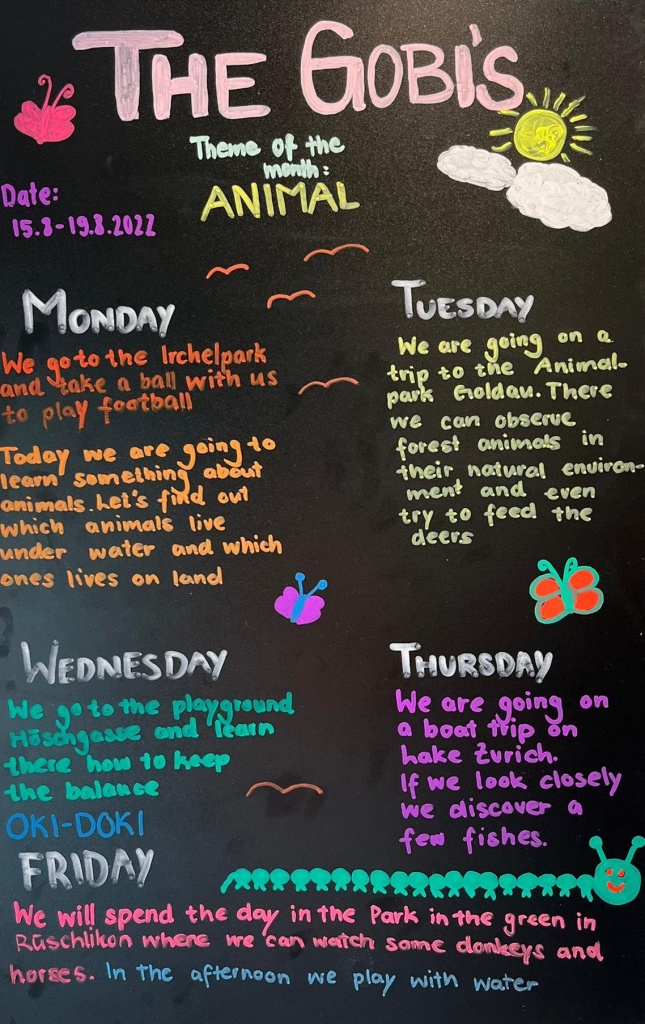 THE GOBI'S
Theme of the
month:
ANIMAL
Date:
15.8-19.8.2022
MONDAY
We go to the Irchelpark
and take a ball with us
to play football
Today we are going to
learn something about
animals. Let's find out
which animals live
under water and which
ones lives on land
TUESDAY
We are going on a
trip to the Animal-
park Goldau. There
we can observe
forest animals in
their natural environ-
ment and even
try to feed the
deers
WEDNESDAY
We go to the playground
Höschgasse and learn
there how to keep
the balance
OKI-DOKI
THURSDAY
We are going on
a boat trip on
Lake Zurich.
If we look closely
we discover a
few fishes.
FRIDAY
We will spend the day in the Park in the green in
Rüschlikon where we can watch some donkeys and
horses. In the afternoon we play with water